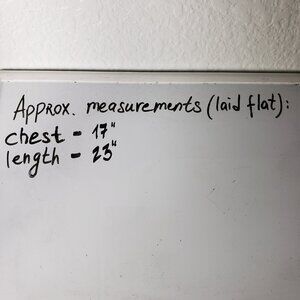 Approx. measurements (laid flat):
chest - 17"
length - 23"